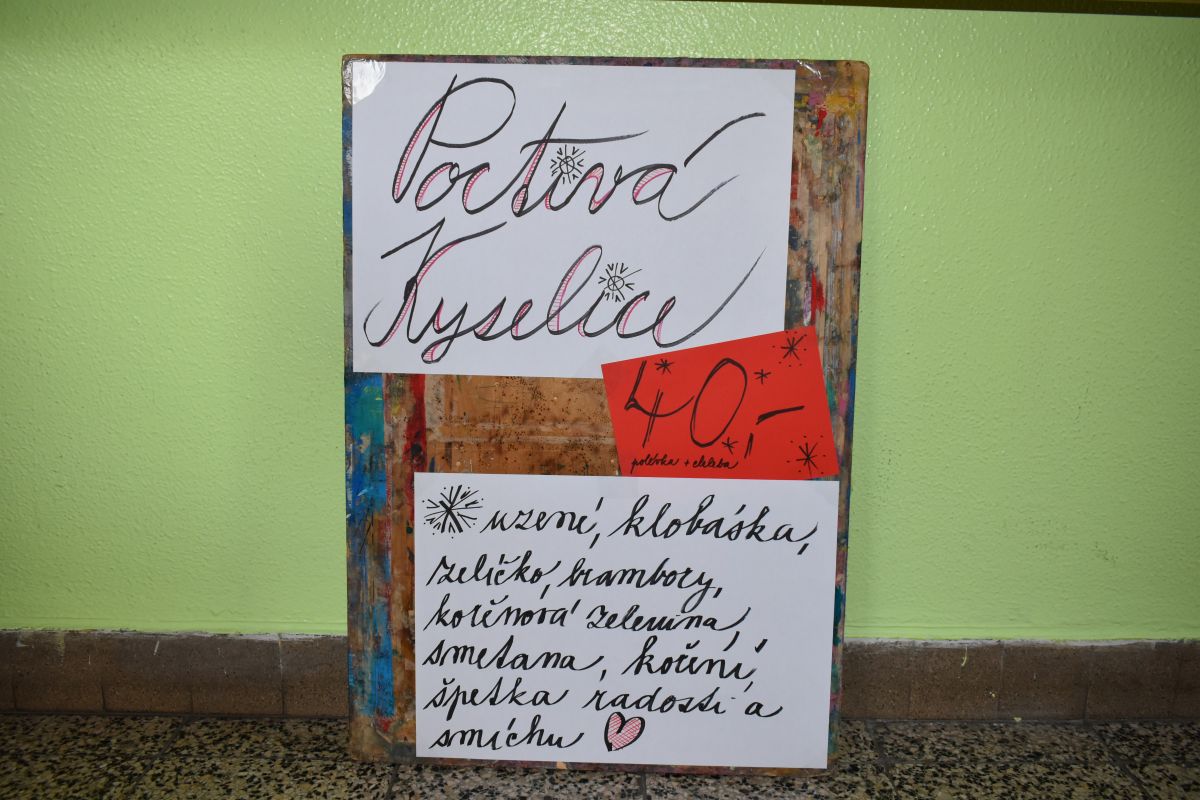 Poctivá
Kyselice
40,-
polévka + chleba
uzené, klobáska,
zelíčko, brambory,
kořenová zelenina,
smetana, koření,
špetka radosti a
smíchu